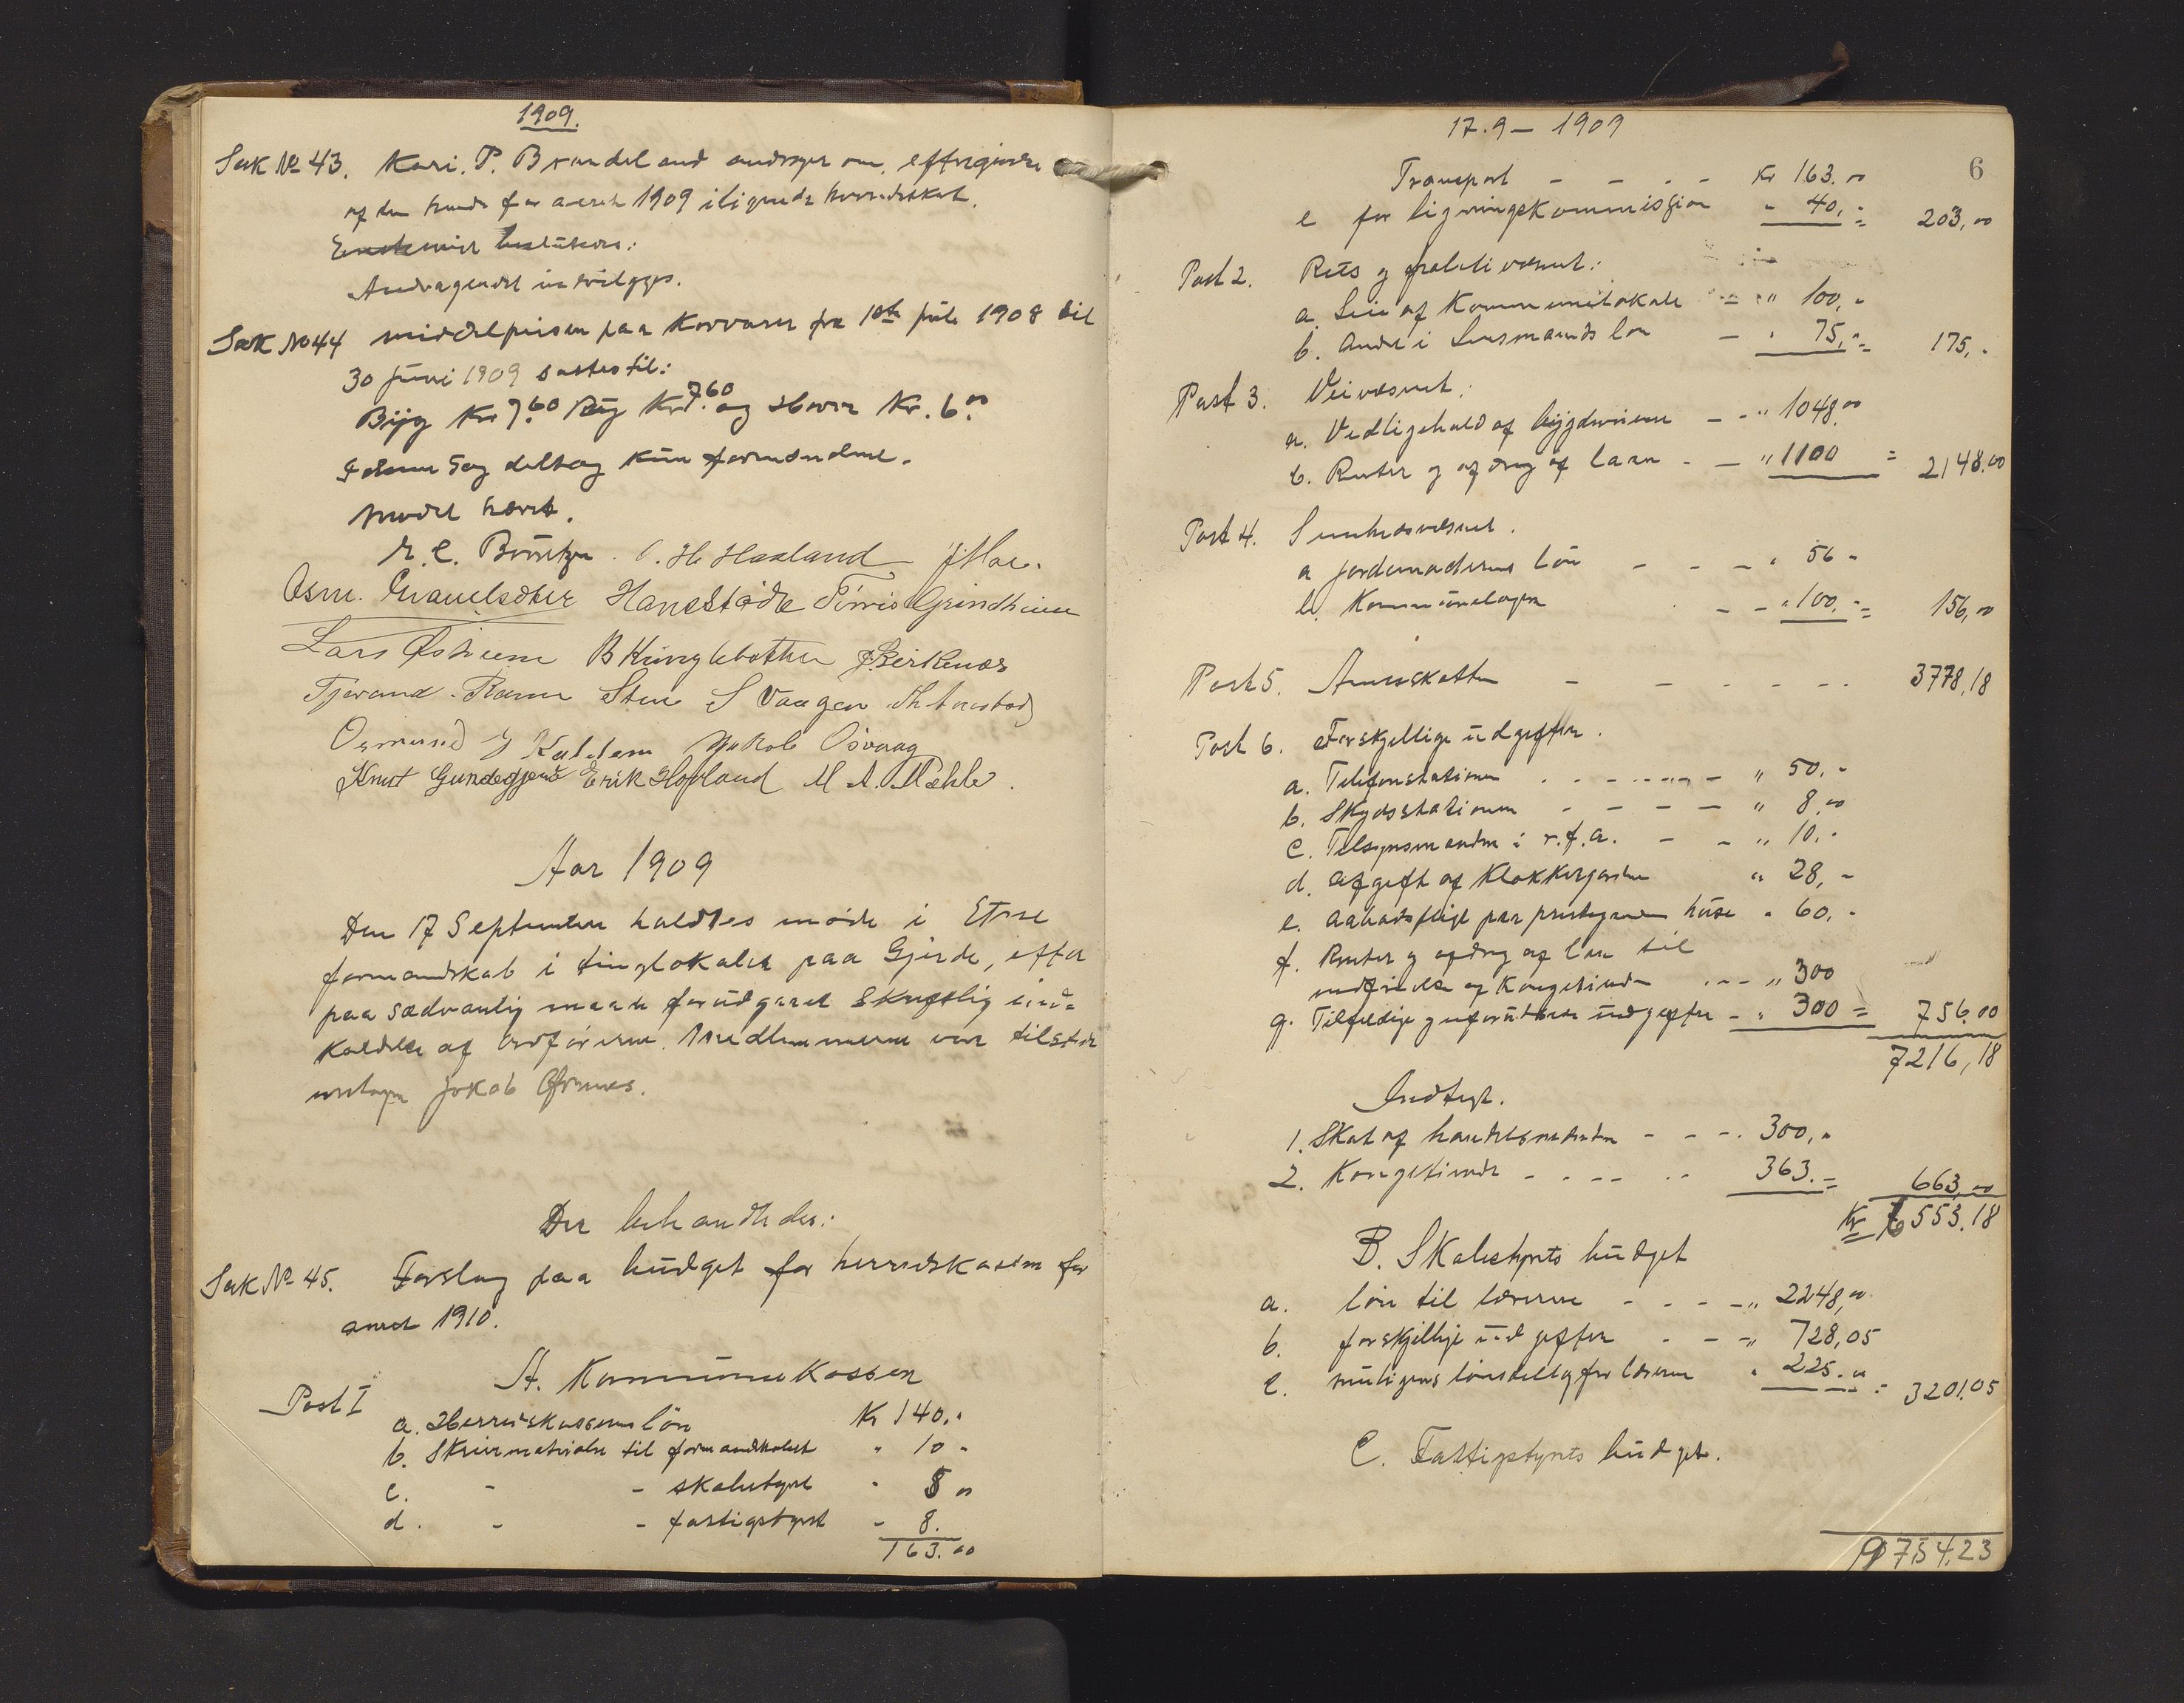 1909.
Sak № 43. Kari. P. Brandeland andrager om eftergivelse
af den hende for aaret 1909 ilignede herredsskat.
Enstemmig besluttedes:
Andragendet indvilges.
Sak No 44 middelprisen paa Kornvarer fra 1ste juli 1908 til
30 Juni 1909 sattes til:
Byg Kr 7.60 Rug Kr. 7.60 og Havre Kr. 6.00
I denne sag deltog kun formændene.
Mødet hævet.
O. H. Haaland J. Moe.
Osm. Hanestade Tørris Grindheim
Lars Østreim B Kringlebotten Birkenæs
Tjerand. Ramn Sten S Vaagen
Osmund J Kaldem Jakob Osvaag
Knut Gundegjerde Erik Hofland M. A. Mæhle.
Aar 1909
Den 17 September holdtes møde i Etne
formandskab i tinglokalet paa Gjerde, efter
paa sædvanlig maate forudgaaet skriftlig ind-
kaldelse af ordføreren. Medlemmerne var tilstede
undtagen Jakob Grinnes.
Der behandledes:
Sak № 45. Forslag paa budget for herredskassen for
aaret 1910.
A. Kommunekassen
Post I
a. Herredskassererens løn Kr 140.-
b. Skrivmaterialer til formandskabet " 10 -
c. - - skolestyret - 5 00
d. - - fattigstyret - 8.
163.00
17.9 - 1909
6
Transport - - - - Kr 163.00
e for ligningskommission " 40,- = 203,00
Post 2. Rets og politivæsenet:
a. Leie af Kommunelokale - " 100,-
b. Andel i Lensmandens løn - " 75,- = 175,-
Post 3. Veivæsenet:
a. Vedligehold af bygdeveiene - - " 1048.00
b. Renter og afdrag af laan - - " 1100 = 2148.00
Post 4. Sundhedsvæsenet.
a Jordemoderens løn - - - " 56 -
b. Kommunelægen - - " 100.- = 156,00
Post 5. Amtsskatten - - - - - 3778,18
Post 6. Forskjellige udgifter.
a. Telefonstationen - - - - " 50.-
b. Skydsstationen - - - - " 8.00
c. Tilsynsmanden i r.f.a. - - " 10.-
d. Afgift af Klokkergarden " 28,-
e. Aabodspligt paa prestegaardens huse " 60.-
f. Renter og afdrag af laan til
indfrielse af Kongetiende - - - " 300
g. Tilfældige og uforudseede udgifter - " 300 = 756.00
7216,18
Indtægt.
1. Skat af handelsmænd - - - 300,-
2. Kongetiende - - - - - 363.- = 663,00
Kr 6553.18
B. Skolestyrets budget
a. løn til lærerne - - - - " 2248,00
b. forskjellige udgifter - - - " 728,05
c. muligens lønstillæg for lærerne " 225.00 = 3201.05
C. Fattigstyrets budget.
9754.23